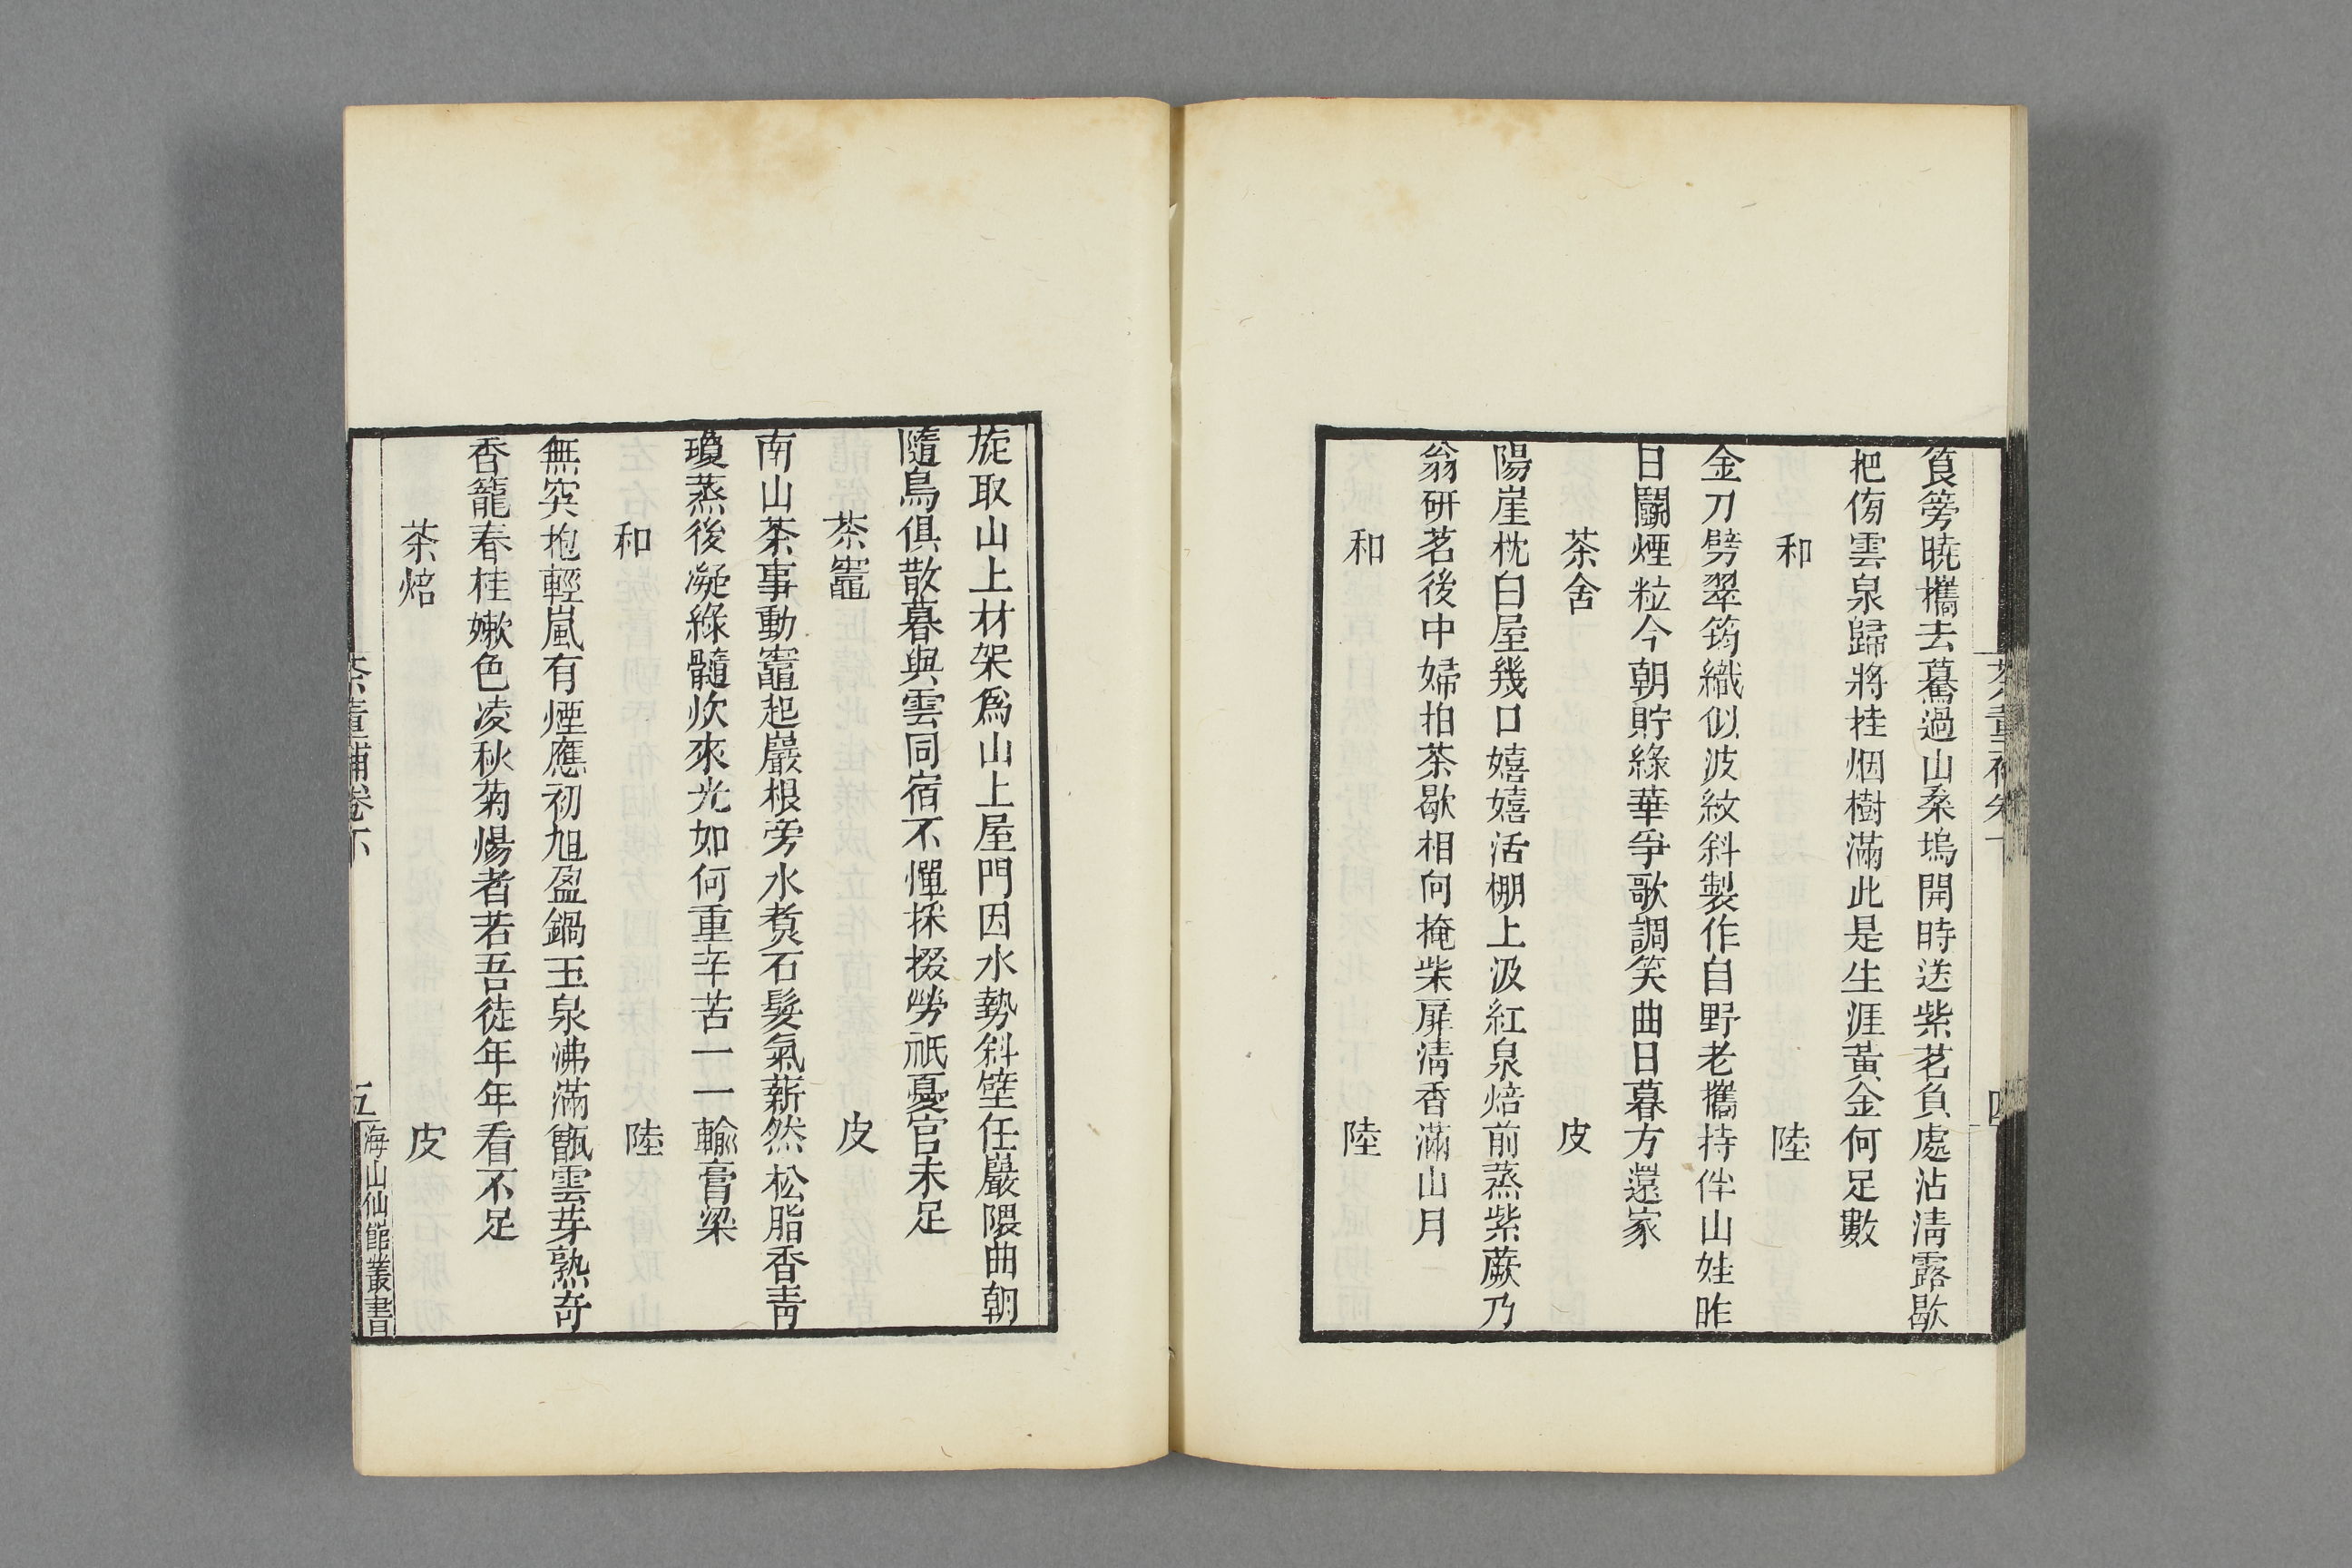 筤篣曉攜去驀過山桑塢開時送紫茗負處沾清露歇
把傍雲泉歸將挂烟樹滿此是生涯黃金何足數
和 陸
金刀劈翠筠織似波紋斜製作自野老攜持伴山娃昨
日鬬煙粒今朝貯綠華爭歌調笑曲日暮方還家
茶舍 皮
陽崖枕白屋幾口嬉嬉活棚上汲紅泉焙前蒸紫蕨乃
翁研茗後中婦拍茶歇相向掩柴扉清香滿山月
和 陸
旋取山上材架爲山上屋門因水勢斜壁任巖隈曲朝
隨鳥俱散暮與雲同宿不憚採掇勞祇憂官未足
茶竈 皮
南山茶事動竈起巖根旁水煑石髮氣薪然松脂香靑
瓊蒸後凝綠髓炊來光如何重辛苦一一輸膏粱
和 陸
無突抱輕嵐有煙應初旭盈鍋玉泉沸滿甑雲芽熟奇
香籠春桂嫩色凌秋菊煬者若吾徒年年看不足
茶焙 皮
茶董補卷下 五 海山仙館叢書